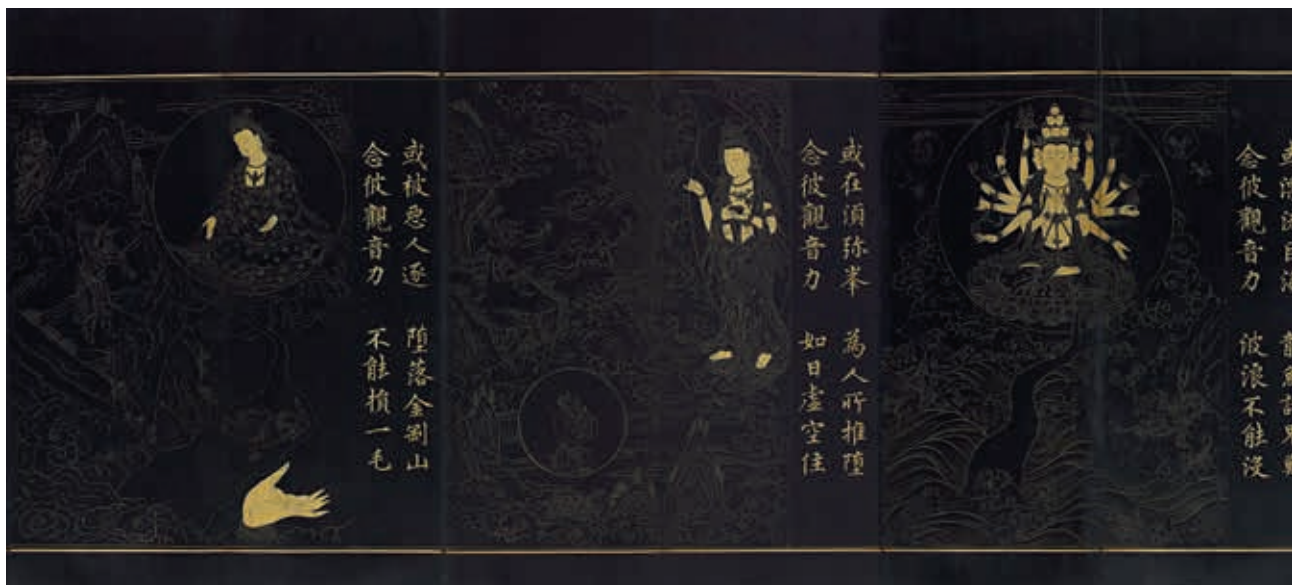 或漂流巨海 龍魚諸鬼難
念彼觀音力 波浪不能沒
或在須弥峯 為人所推墮
念彼觀音力 如日虛空住
或被惡人逐 墮落金剛山
念彼觀音力 不能損一毛